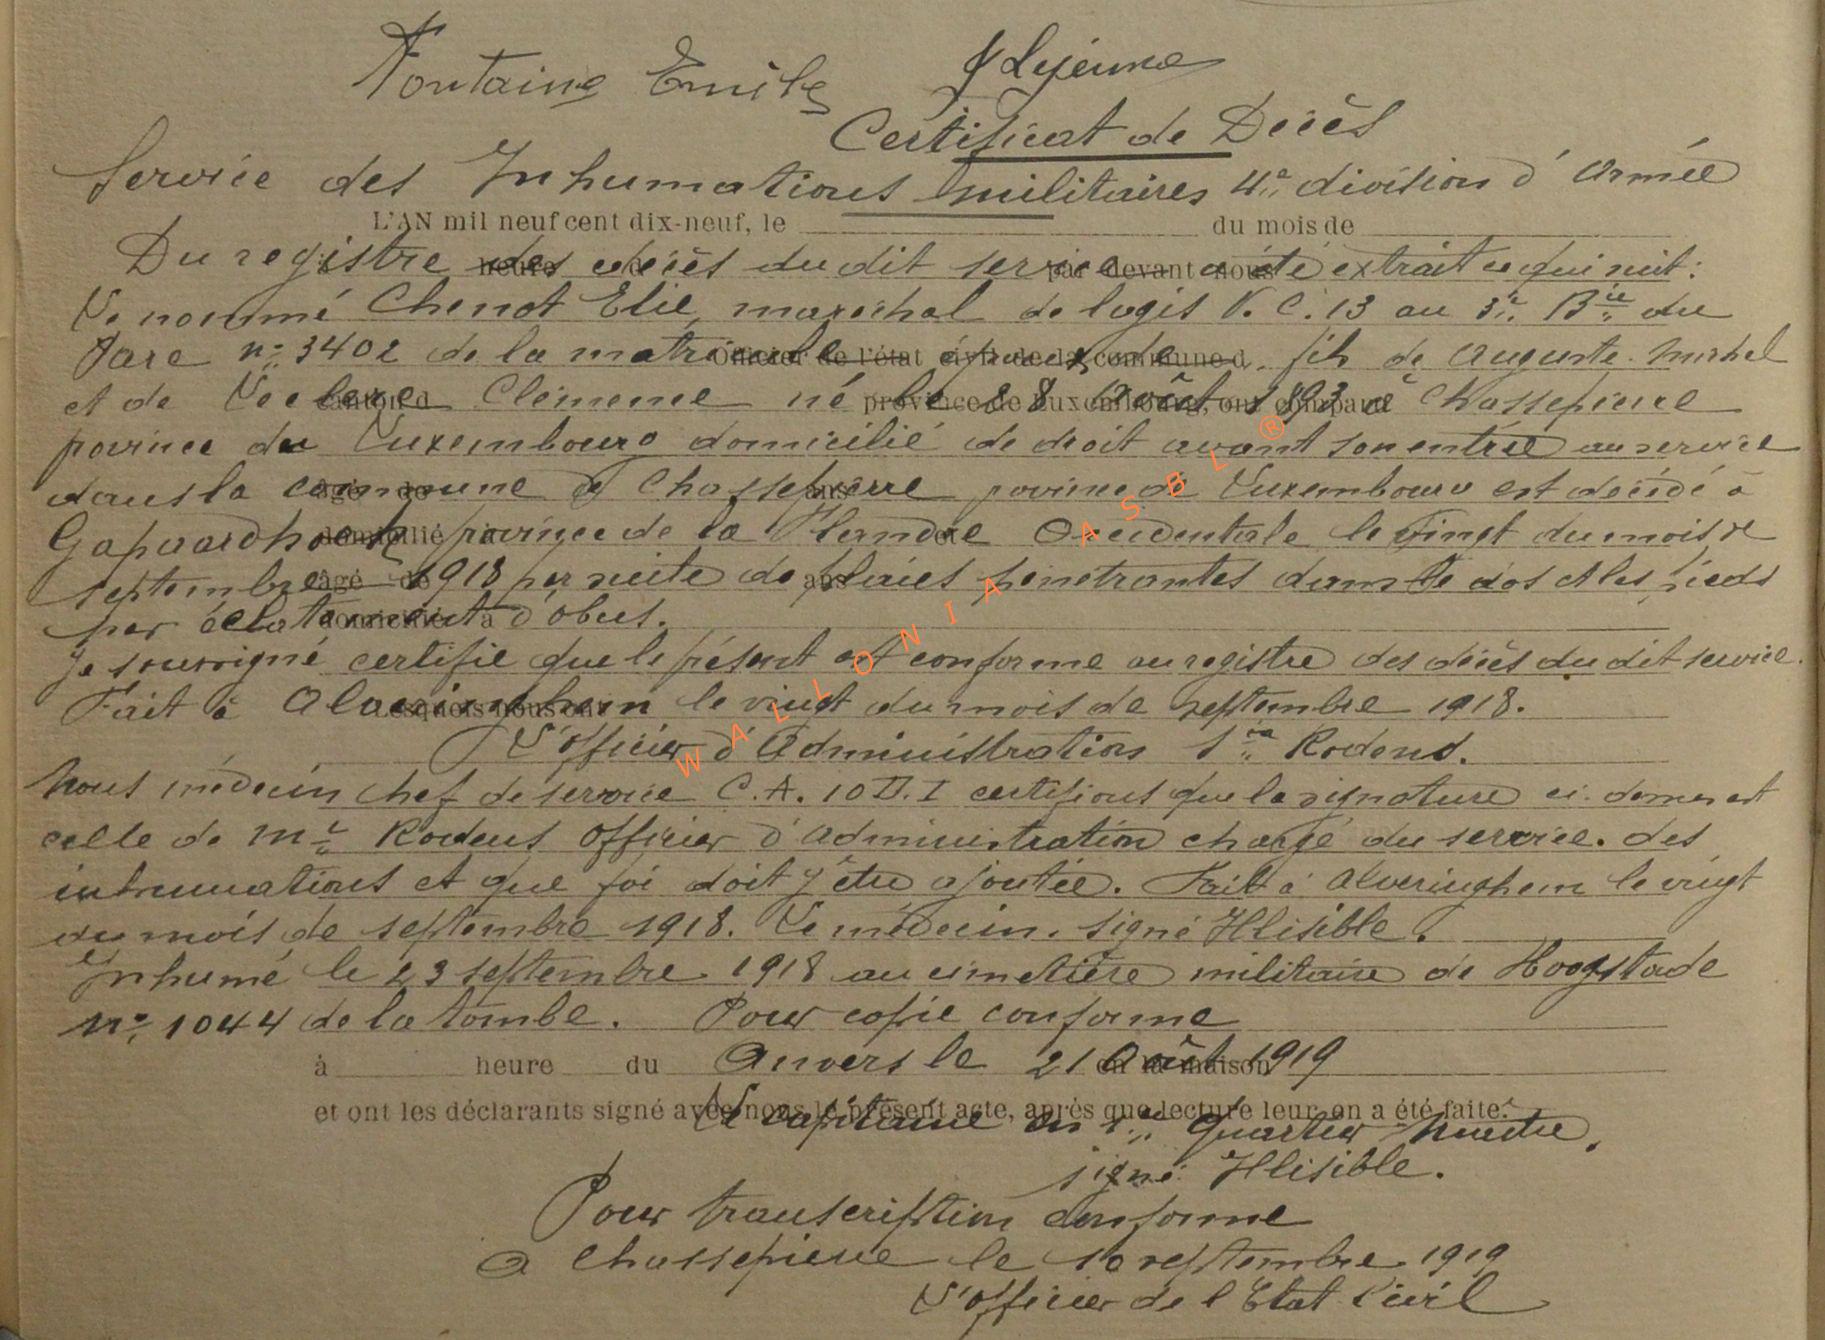 Fontaine Emile J Lejeune
Certificat de Décès
Service des Inhumations militaires 4e division d'Armée
L'AN mil neuf cent dix-neuf, le du mois de
Du registre des décès du dit service a été extrait ce qui suit:
heure par devant nous
Le nommé Chenot Elie, maréchal de logis V. C. 13 au 3e Bie du
Parc no 3402 de la matricule époux de fils de Auguste. Michel
Officier de l'état civil de la commune d
et de Leclere Clémence né le 28 Août 1893 à Chassepierre
canton d province de Luxembourg, ont comparu
province du Luxembourg domicilié de droit avant son entrée au service
dans la commune de Chassepierre province de Luxembourg est décédé à
âgé de ans
Gapaardhoek province de la Flandre Occidentale le vingt du mois de
domicilié à et
septembre 1918 par suite de plaies pénétrantes dans le dos et les pieds
âgé de ans
par éclatement d'obus.
domicilié à
Je soussigné certifie que le présent est conforme au registre des décès du dit service.
Fait à Alveringhem le vingt du mois de septembre 1918.
Lesquels nous ont
L'officier d'Administration Rodens.
Nous médecin chef de service C.A. 10 D.I certifions que la signature ci-dessus est
celle de Mr Rodens officier d'administration chargé du service. des
inhumations et que foi doit y être ajoutée. Fait à Alveringhem le vingt
du mois de septembre 1918. Le médecin. signé Illisible.
Inhumé le 23 septembre 1918 au cimetière militaire de Hoogstade
no 1044 de la tombe. Pour copie conforme
à heure du Anvers le 21 Août 1919
en la maison
et ont les déclarants signé avec nous le présent acte, après que lecture leur en a été faite.
Le capitaine en 1er Quartier Maitre.
signé Illisible.
Pour transcription conforme
à Chassepierre le 10 septembre 1919
L'officier de l'Etat Civil
WALLONIA ASBL ®